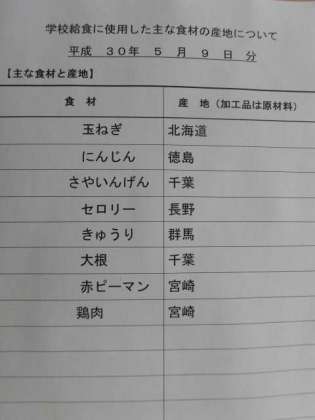 学校給食に使用した主な食材の産地について
平成 30年 5 月 9 日 分
【主な食材と産地】
食 材 産 地（加工品は原材料）
玉ねぎ 北海道
にんじん 徳島
さやいんげん 千葉
セロリー 長野
きゅうり 群馬
大根 千葉
赤ピーマン 宮崎
鶏肉 宮崎